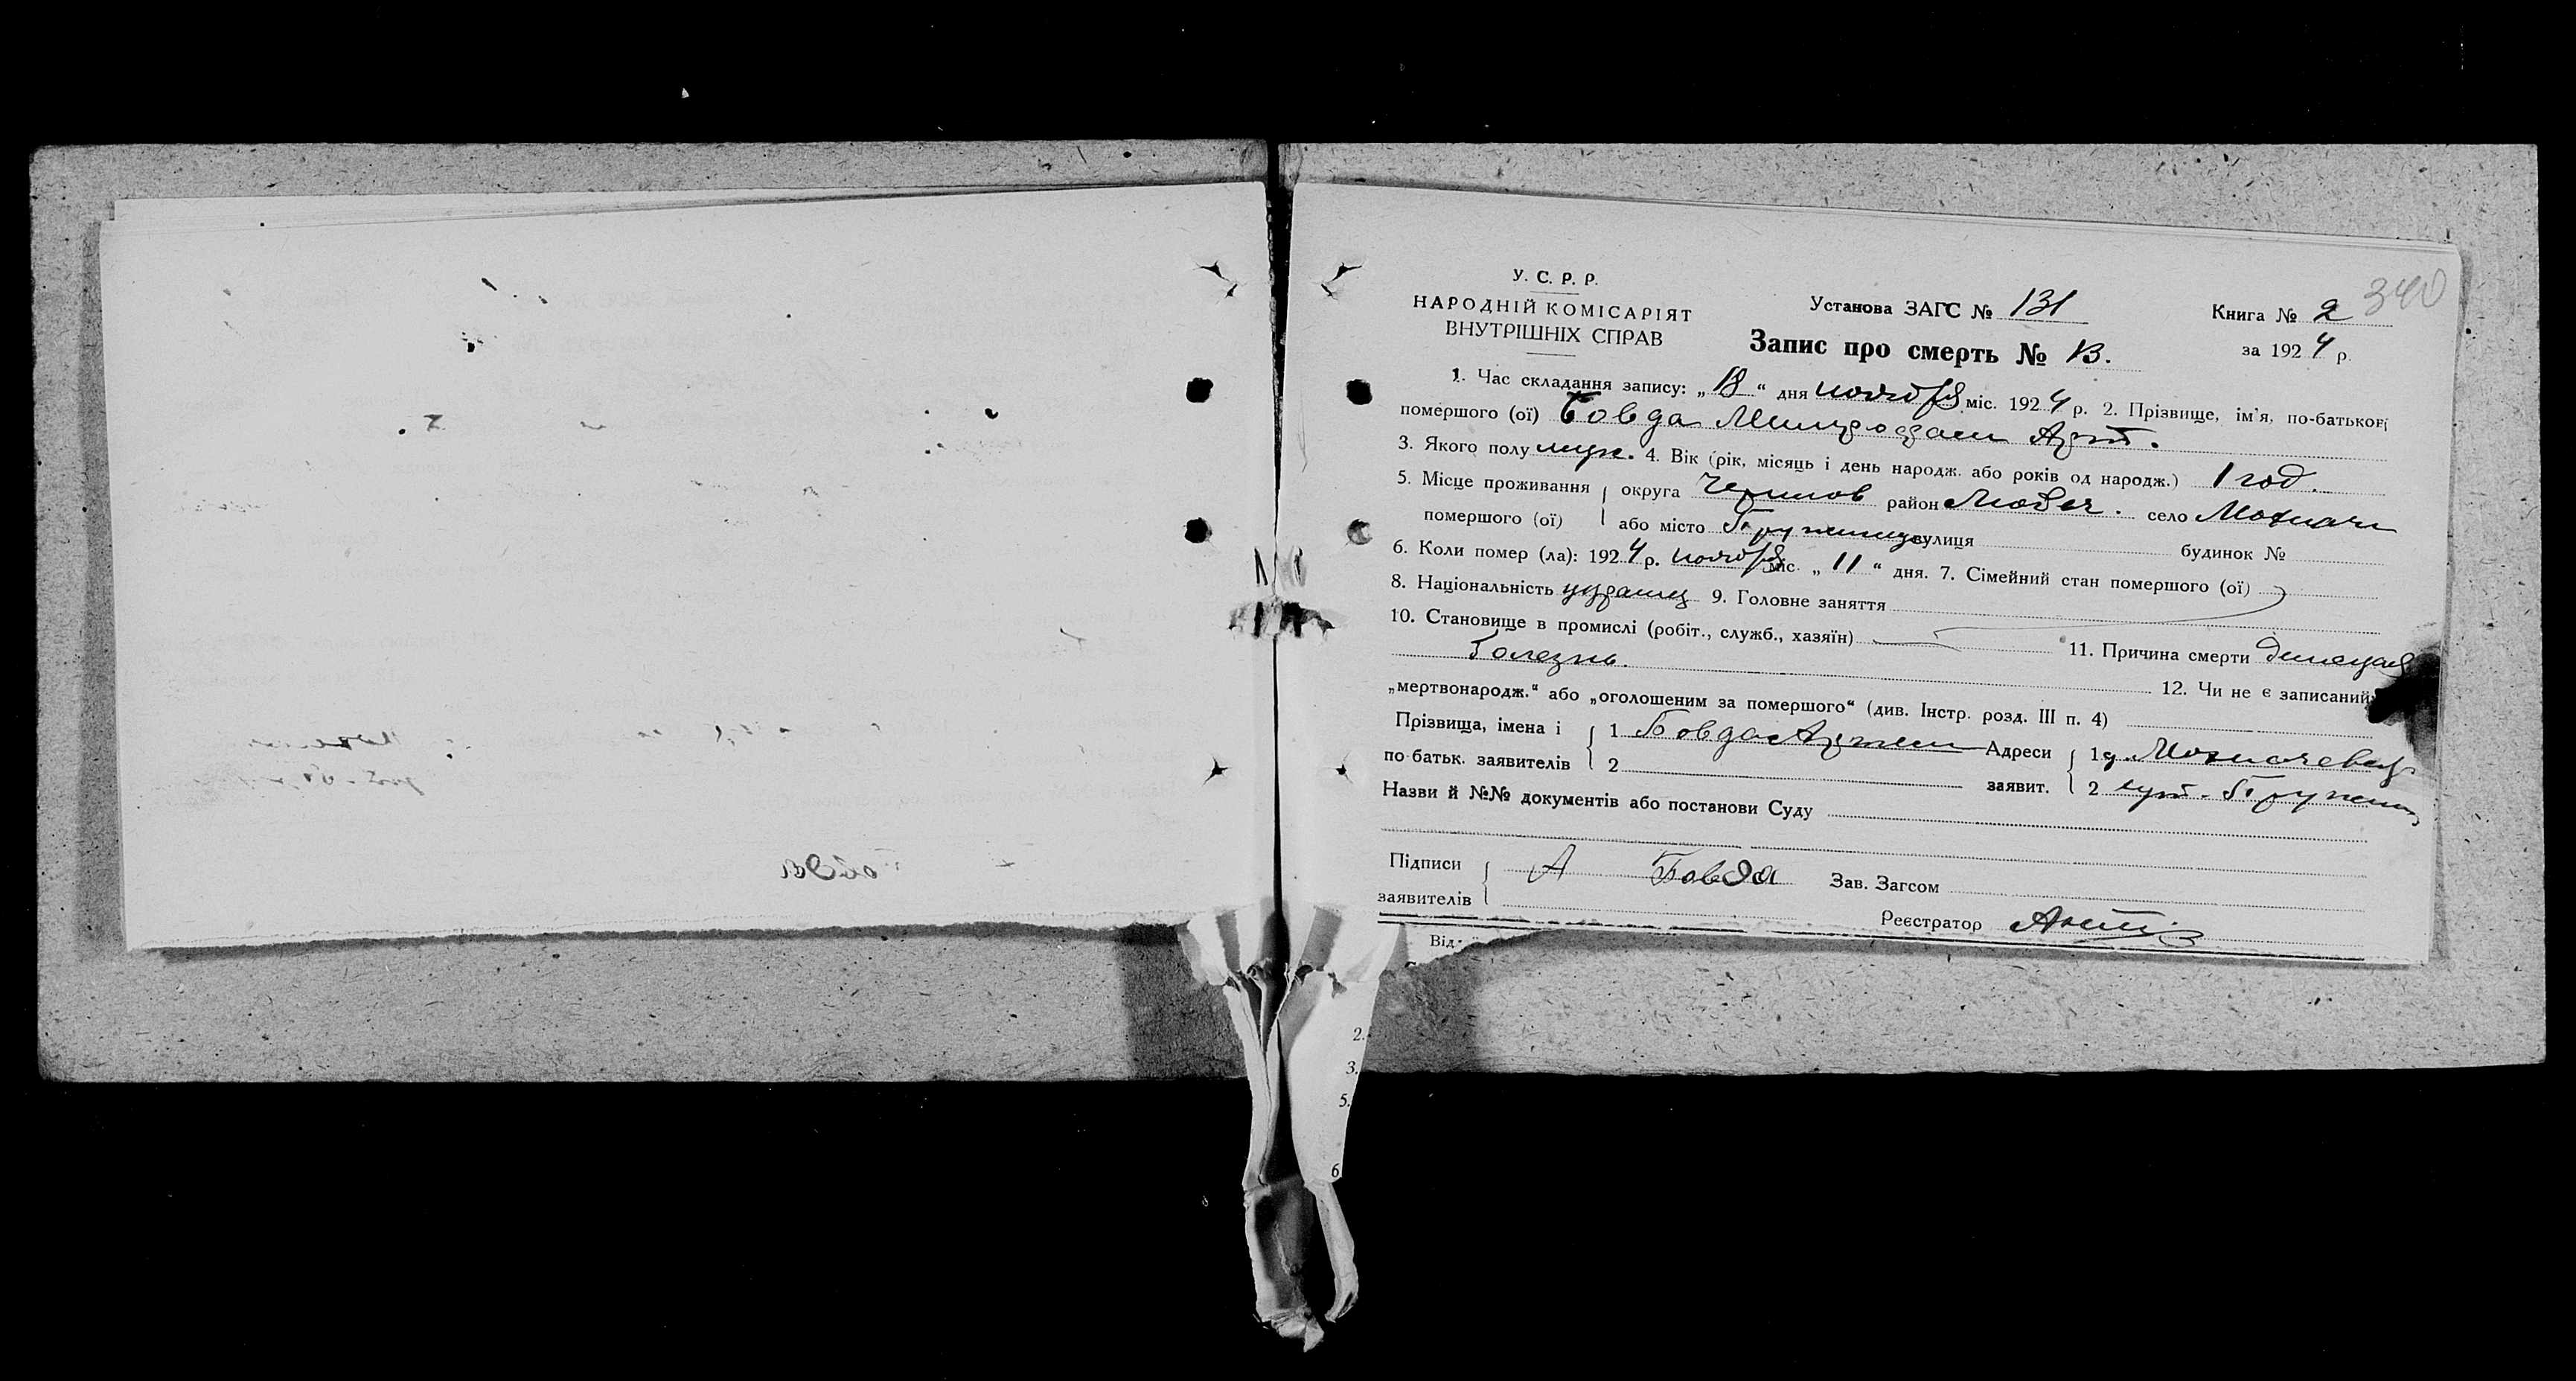 У. С. Р. Р.
НАРОДНІЙ КОМІСАРІЯТ
ВНУТРІШНІХ СПРАВ
Установа ЗАГС № 131
Книга № 2
340
Запис про смерть № 13.
за 1924 р.
1. Час складання запису: „13“ дня ноября міс. 1924 р. 2. Прізвище, ім'я, по-батькові
помершого (ої) Бовда Арт.
3. Якого полу муж. 4. Вік (рік, місяць і день народж. або років од народж.) 1 год.
5. Місце проживання округа Чернигов район Любеч. село Мохначи
помершого (ої) або місто вулиця будинок №
6. Коли помер (ла): 1924 р. ноября міс. „11“ дня. 7. Сімейний стан помершого (ої)
8. Національність украинец 9. Головне заняття
10. Становище в промислі (робіт., служб., хазяїн) 11. Причина смерти детская
болезнь. 12. Чи не є записаний
„мертвонародж.“ або „оголошеним за помершого“ (див. Інстр. розд. III п. 4)
Прізвища, імена і 1 Бовда Артем Адреси 1 д.
по-батьк. заявителів 2 заявит. 2 хут.
Назви й №№ документів або постанови Суду
Підписи А Бовда Зав. Загсом
заявителів
Реєстратор
Від
2.
3.
5.
6